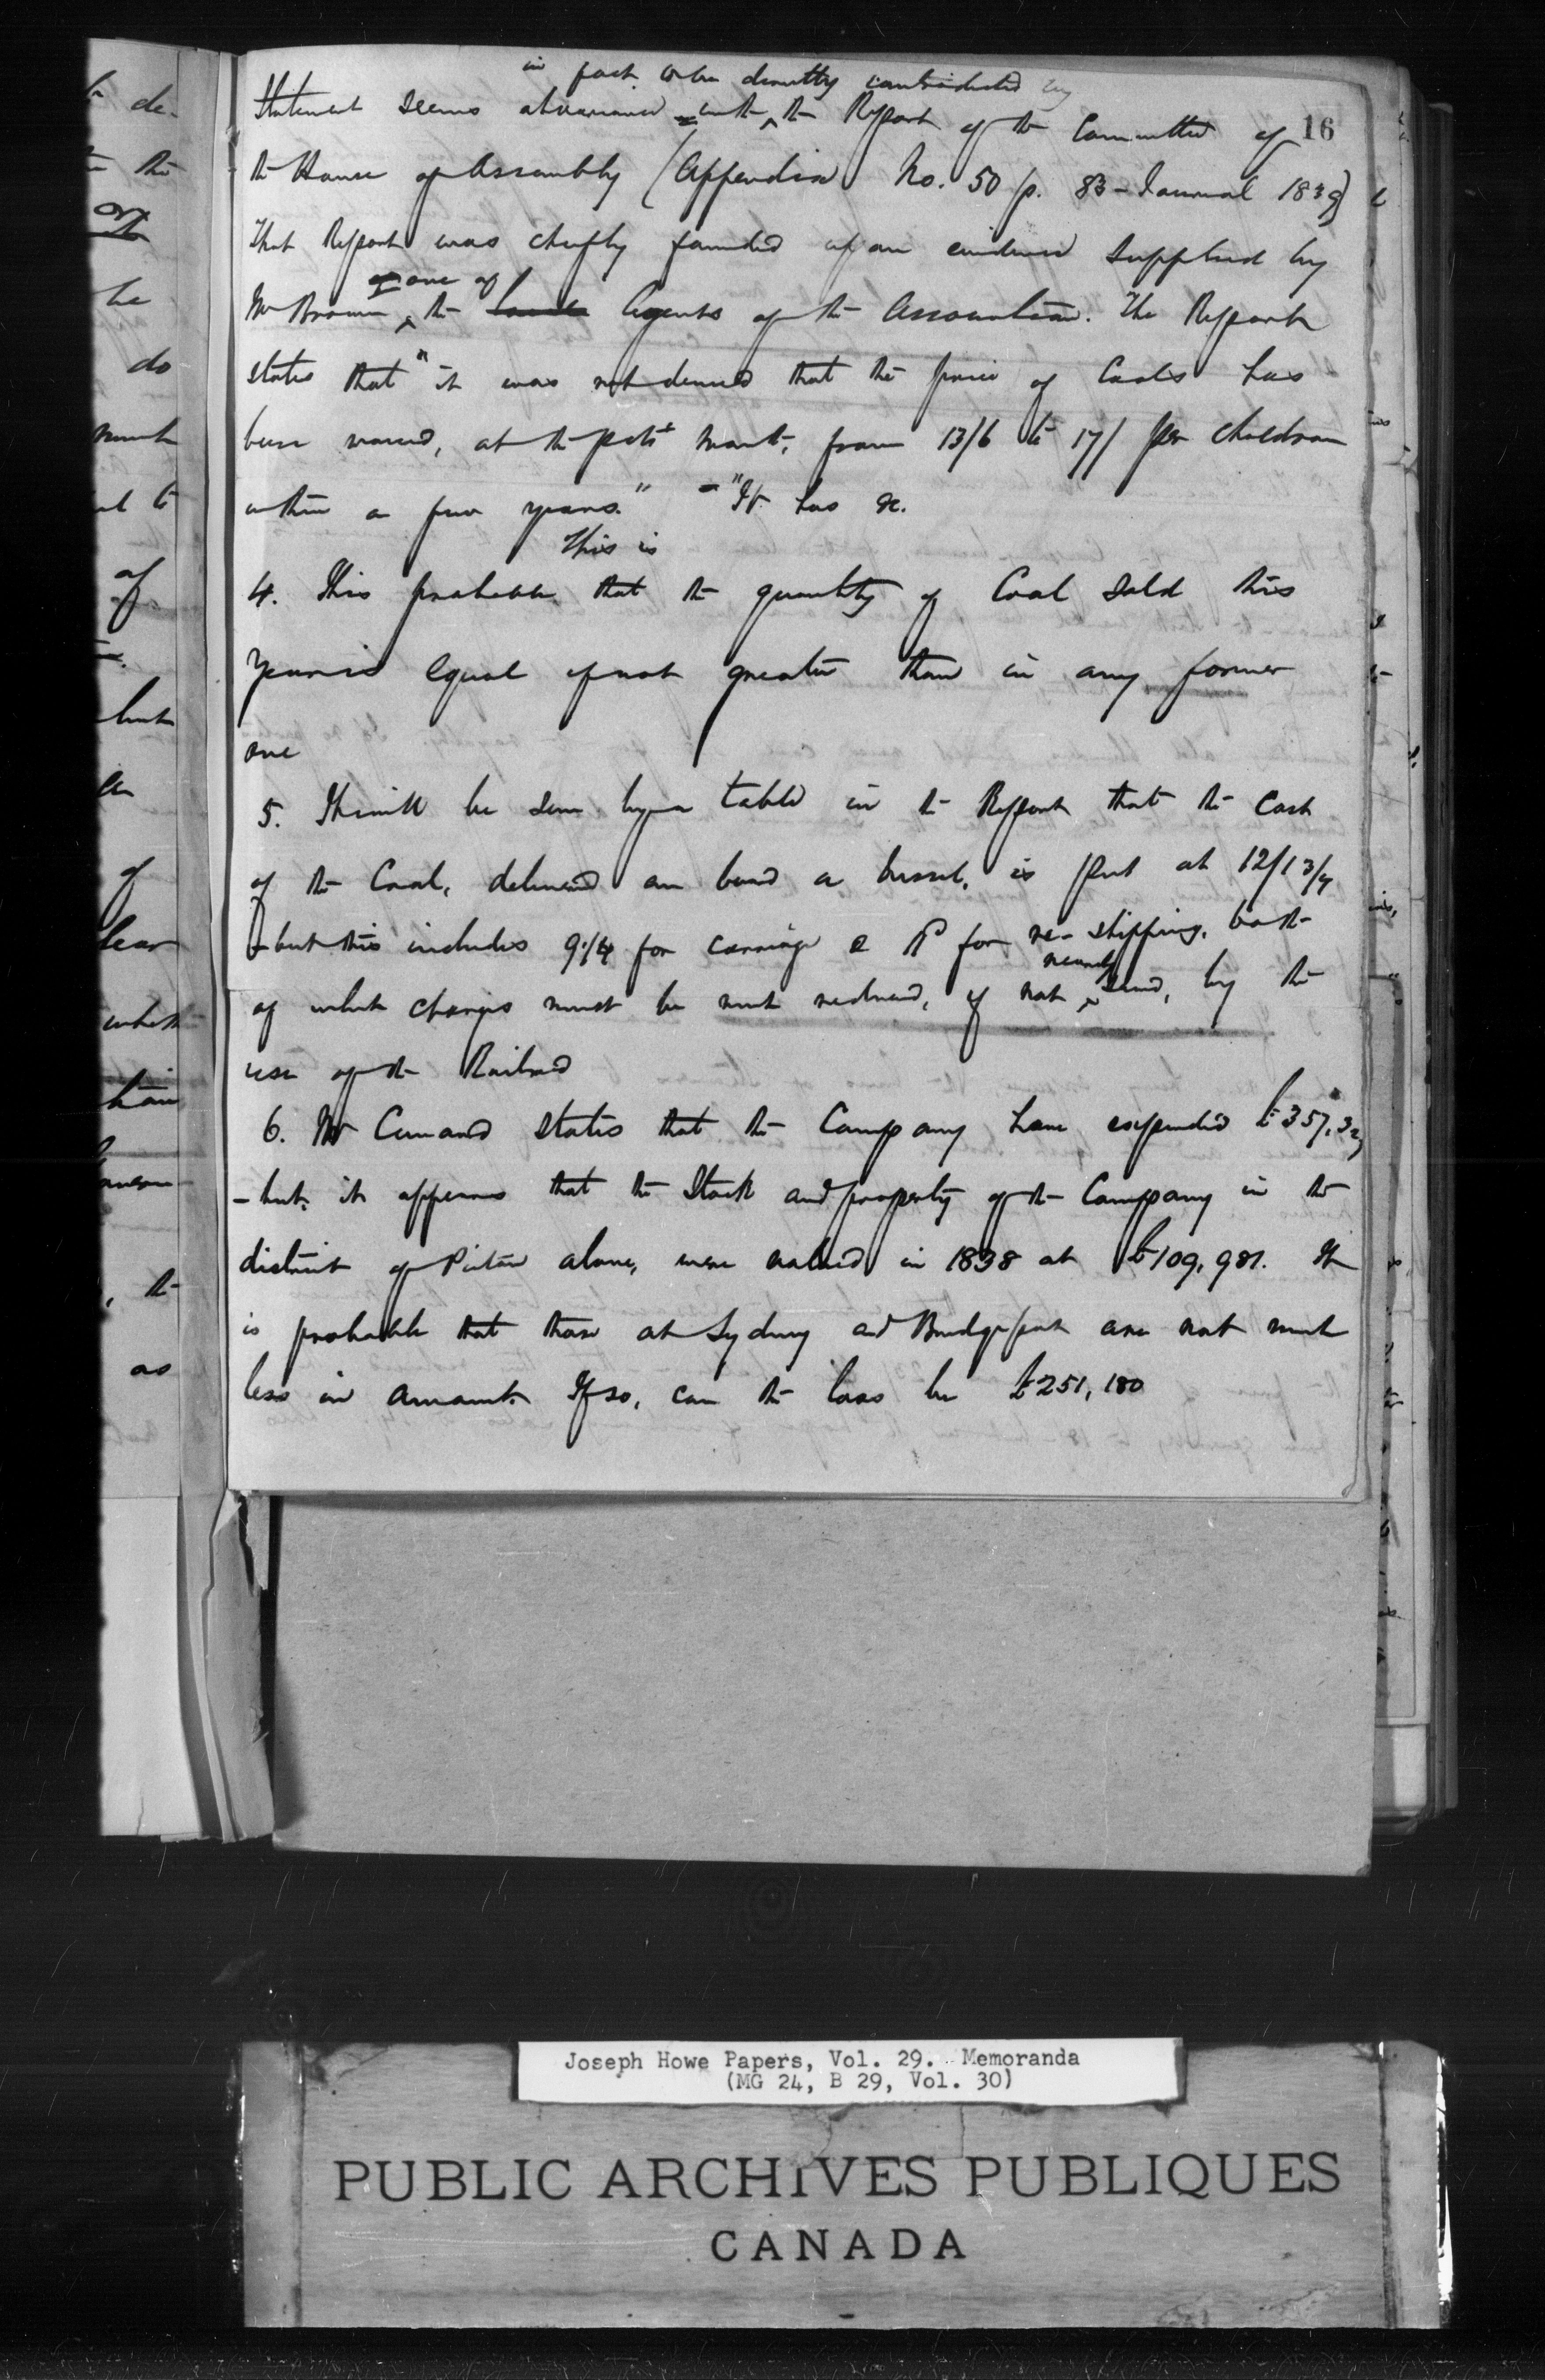 in fact to be directly contradicted by
Statement seems at variance with the Report of the Committee of 16
the House of Assembly (Appendix No. 50 p. 83 - Journal 1839)
That Report was chiefly founded upon evidence supplied by
or one of
Mr Brown the Agents of the Association. The Report
states that "it was not denied that the price of Coals has
been varied, at the pit's mouth, from 13/6 to 17/ per chaldron
within a few years." - "It has &c.
This is
4. It is probable that the quantity of Coal sold this
year is equal if not greater than in any former
one
5. It will be seen by a table in the Report that the cost
of the Coal, delivered on board a vessel, is put at 12/1 3/4
- but this includes for carriage & for re-shipping, both
nearly
of which charges must be much reduced, if not saved, by the
use of the Railroad
6. Mr Cunard states that the Company have expended £357,32
- but it appears that the Stock and property of the Company in the
district of Pictou alone, were valued in 1838 at £109,981. It
is probable that those at Sydney and Bridgeport are not much
less in amount. If so, can the loss be £251,180
de-
the
be
do
much
of
but
of
which
as
Joseph Howe Papers, Vol. 29. Memoranda
(MG 24, B 29, Vol. 30)
PUBLIC ARCHIVES PUBLIQUES
CANADA